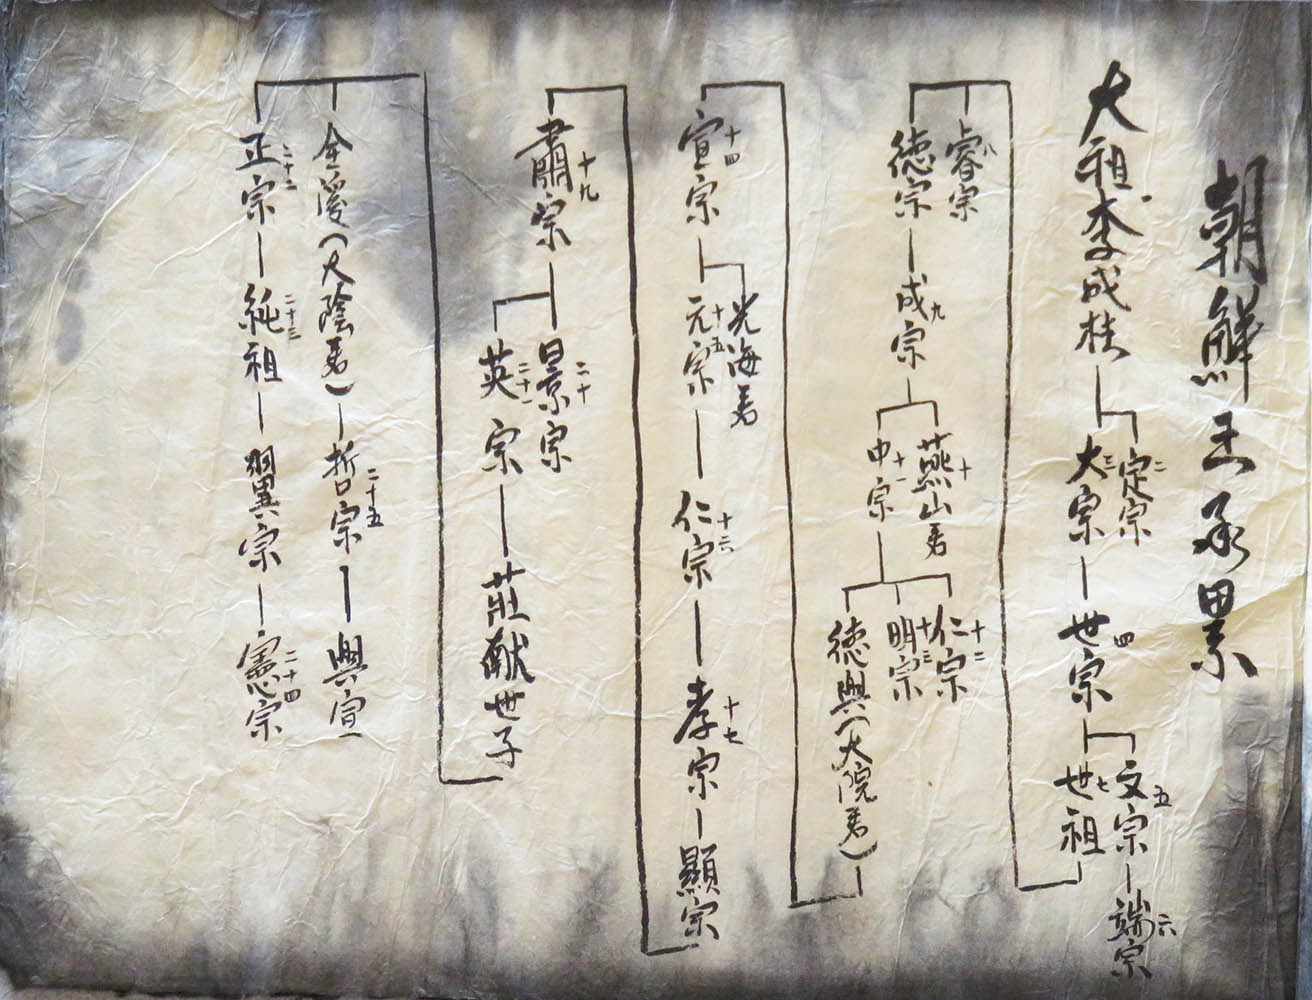 朝鮮王承累
大祖李成桂
定宗 二
大宗 三
世宗 四
文宗 五
端宗 六
世祖 七
睿宗 八
德宗
成宗 九
燕山君 十
中宗 十一
仁宗 十二
明宗 十三
德興(大院君)
宣宗 十四
光海君
元宗 十五
仁宗 十六
孝宗 十七
顯宗
肅宗 十九
景宗 二十
英宗 二十一
莊献世子
全溪(大陰君)
哲宗 二十五
興宣
正宗 二十二
純祖 二十三
翼宗
憲宗 二十四